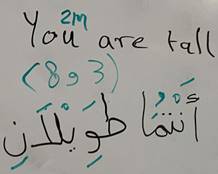 2M
You are tall
(8 و 3)
أَنْتُمَا طَوِيْلَانِ